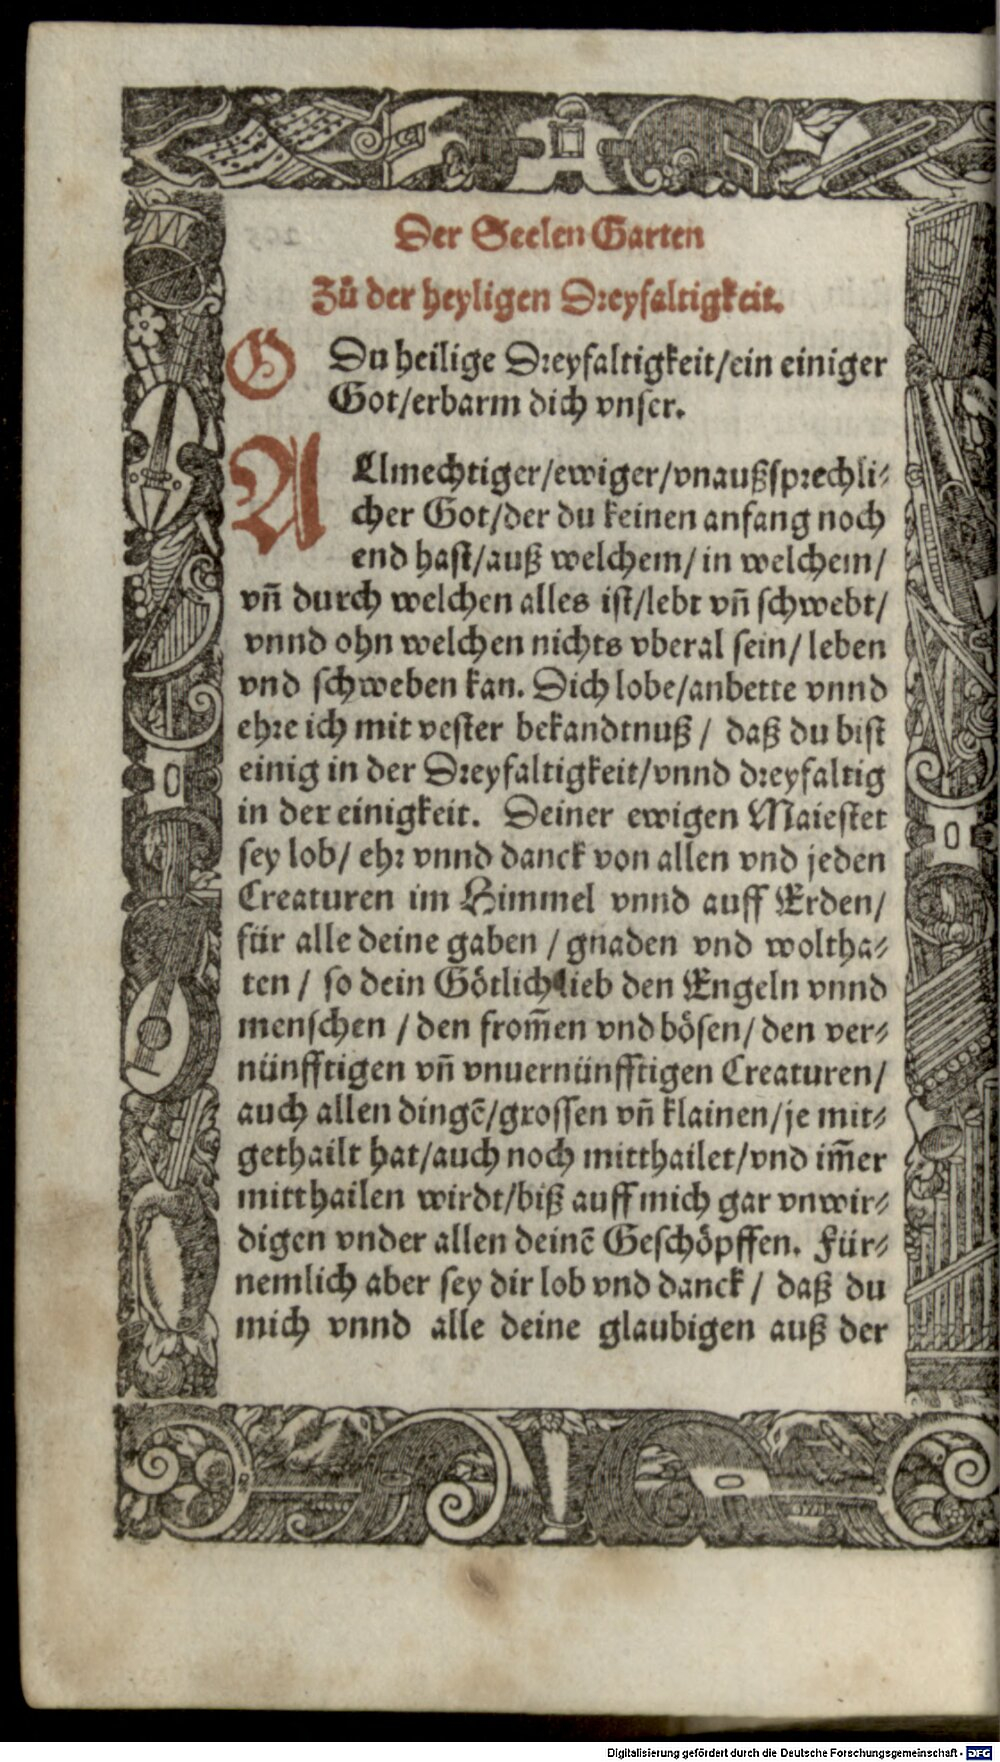 Der Seelen Garten
Zů der heyligen Dreyfaltigkeit.
O Du heilige Dreyfaltigkeit/ein einiger
Got/erbarm dich vnser.
ALlmechtiger/ewiger/vnaußsprechli-
cher Got/der du keinen anfang noch
end hast/auß welchem/in welchem/
vñ durch welchen alles ist/lebt vñ schwebt/
vnnd ohn welchen nichts vberal sein/leben
vnd schweben kan. Dich lobe/anbette vnnd
ehre ich mit vester bekandtnuß/ daß du bist
einig in der Dreyfaltigkeit/vnnd dreyfaltig
in der einigkeit. Deiner ewigen Maiestet
sey lob/ ehr vnnd danck von allen vnd jeden
Creaturen im Himmel vnnd auff Erden/
für alle deine gaben / gnaden vnd woltha-
ten / so dein Götlich lieb den Engeln vnnd
menschen / den from̃en vnd bösen/ den ver-
nünfftigen vñ vnuernünfftigen Creaturen/
auch allen dingẽ/grossen vñ klainen/je mit-
gethailt hat/auch noch mitthailet/vnd im̃er
mitthailen wirdt/biß auff mich gar vnwir-
digen vnder allen deinẽ Geschöpffen. Für-
nemlich aber sey dir lob vnd danck / daß du
mich vnnd alle deine glaubigen auß der
Digitalisierung gefördert durch die Deutsche Forschungsgemeinschaft - DFG